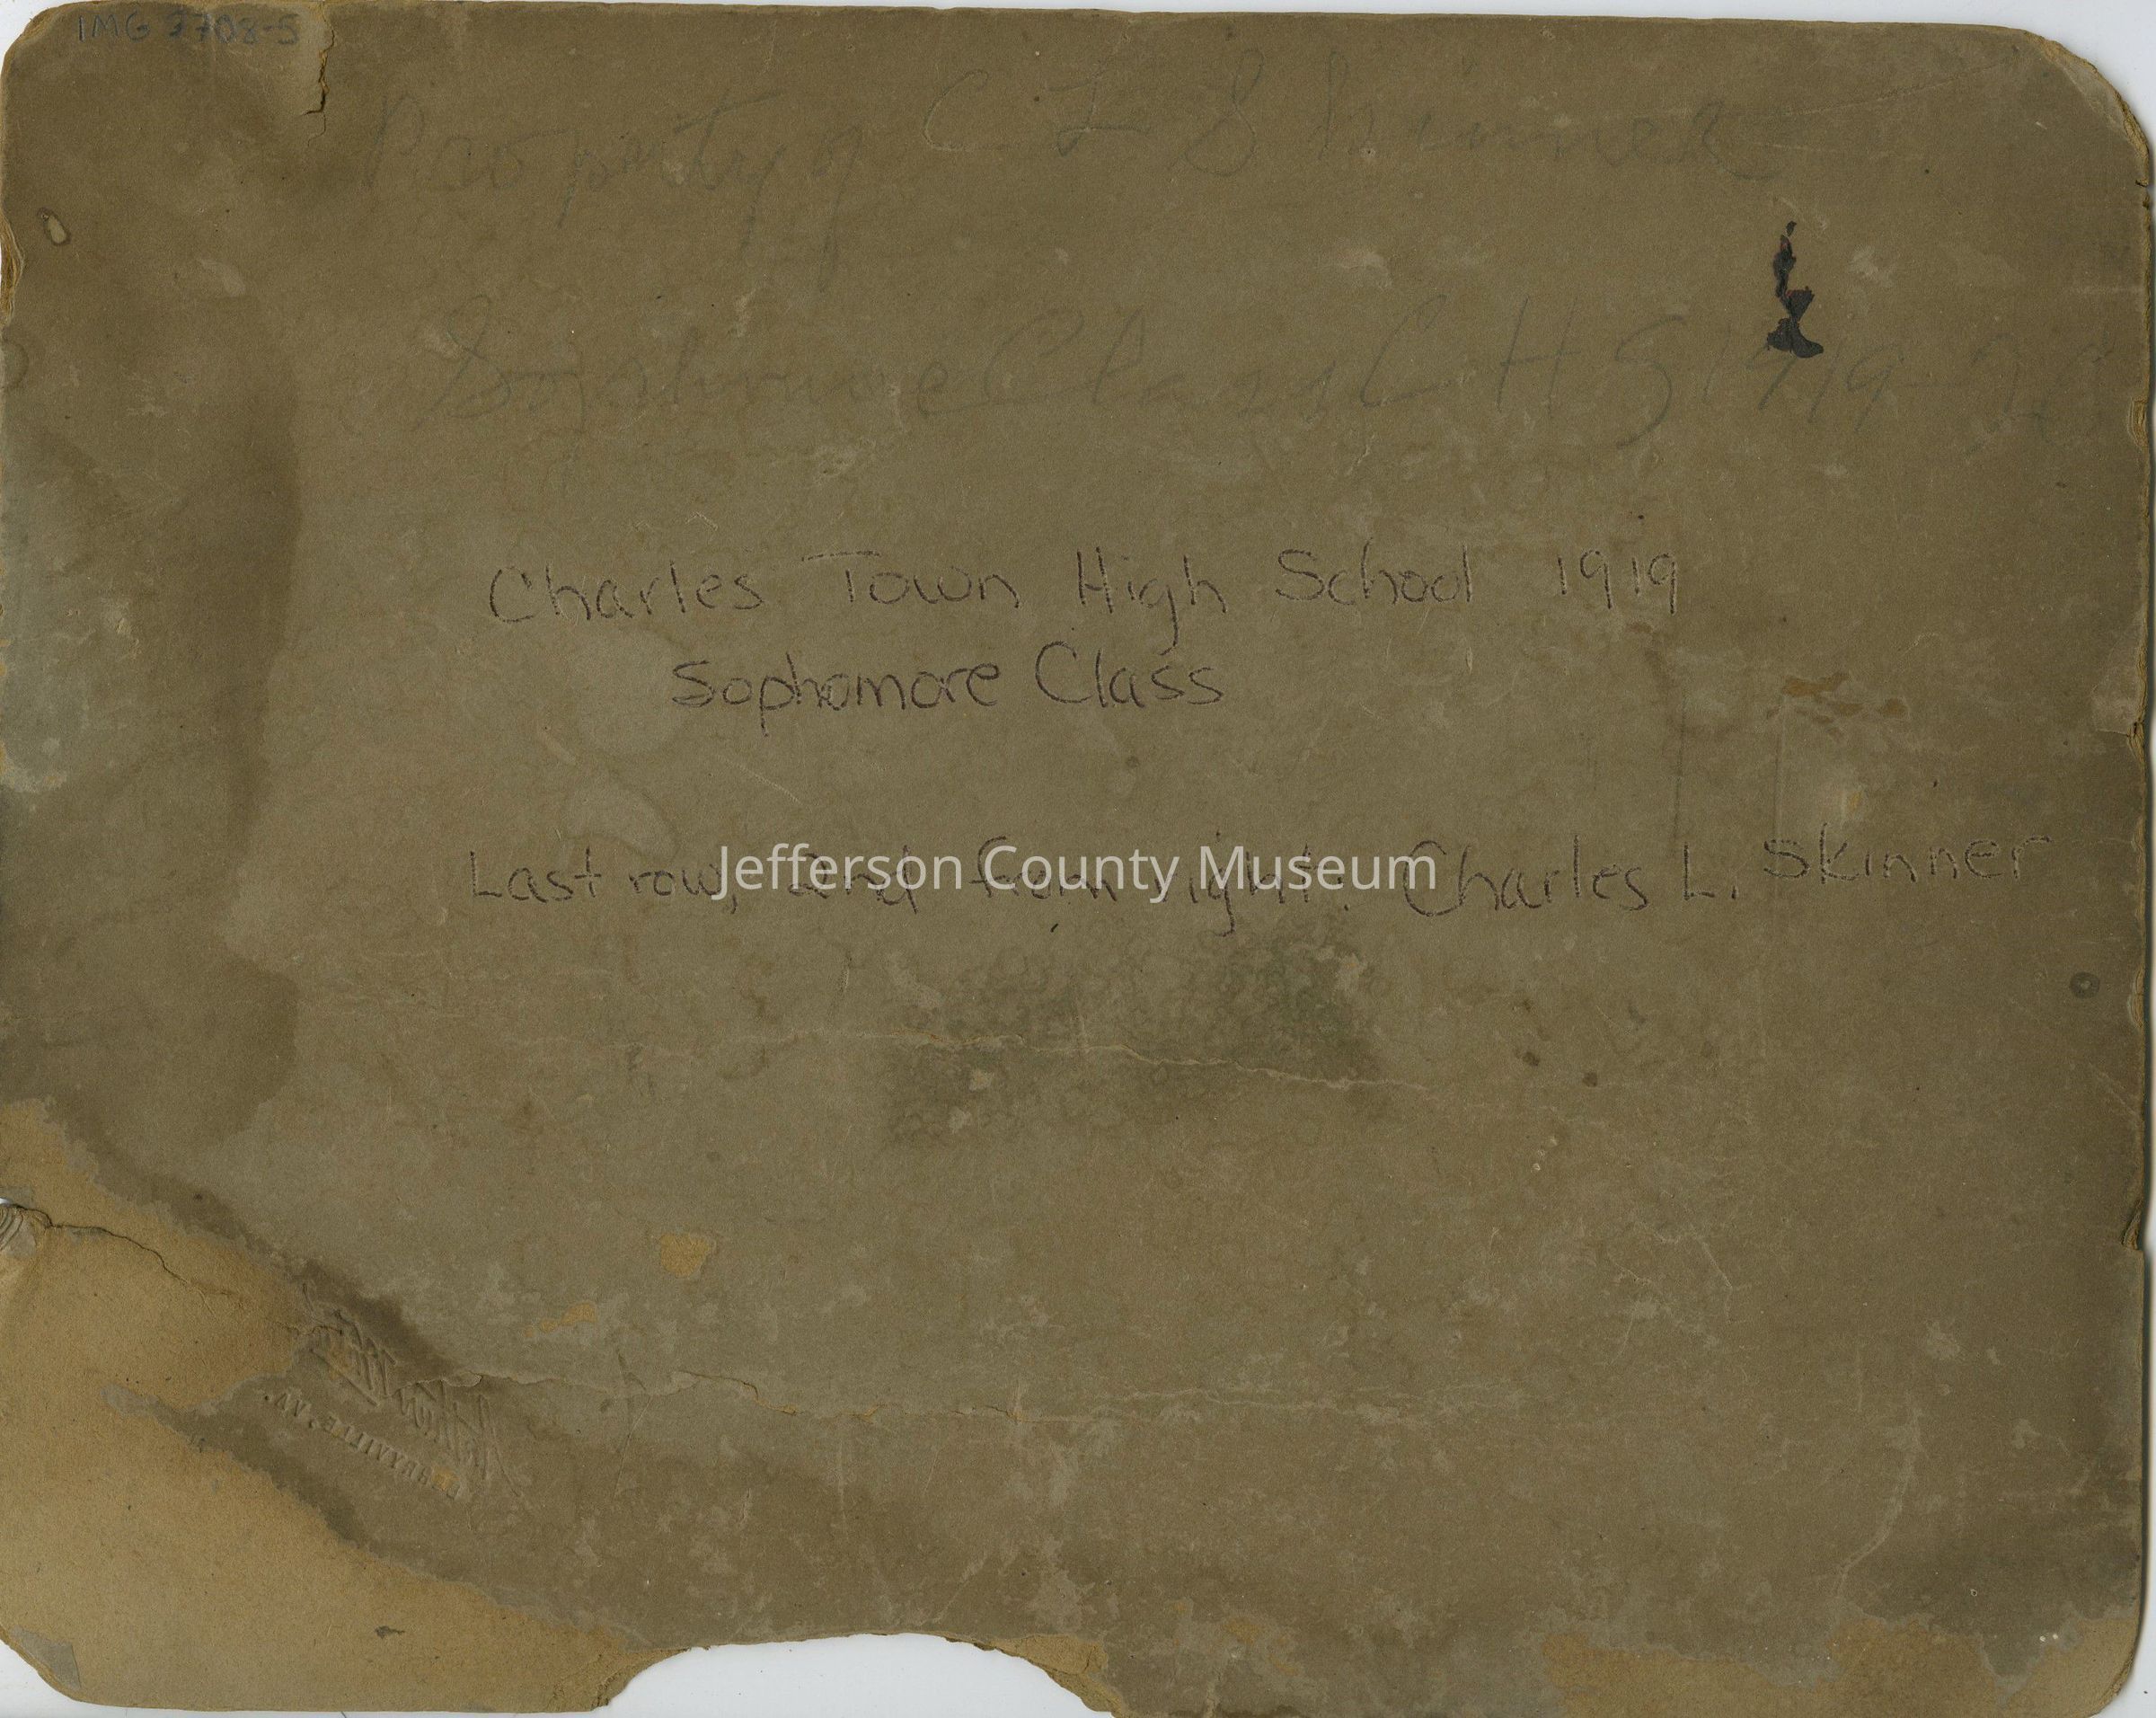 IMG 2708-5
Property of C L Skinner
Sophmore Class C H S 1919-20
Charles Town High School 1919
Sophomore Class
Last row, 2nd from right: Charles L. Skinner
Jefferson County Museum
BERRYVILLE. VA.